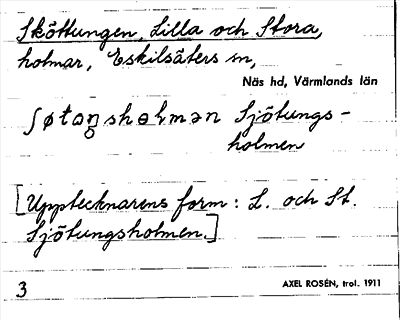 Sköttungen, Lilla och Stora,
holmar, Eskilsäters sn,
Näs hd, Värmlands län
ʃøtaŋshɵlmən Sjötungs-
holmen
[Upptecknarens form: L. och St.
Sjötungsholmen.]
3 AXEL ROSÉN, trol. 1911